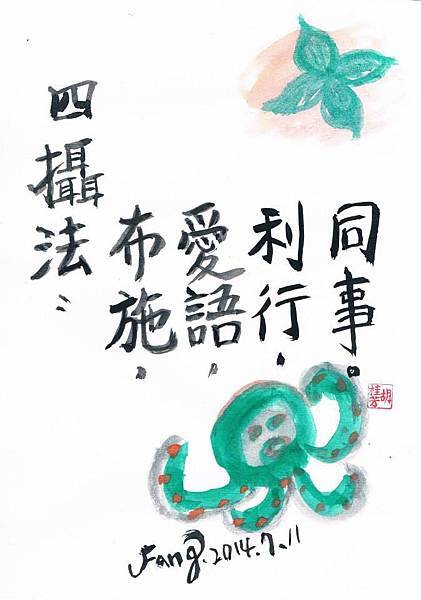 四攝法：
布施，
愛語，
利行，
同事。
胡桂芳
Fang.2014.7.11